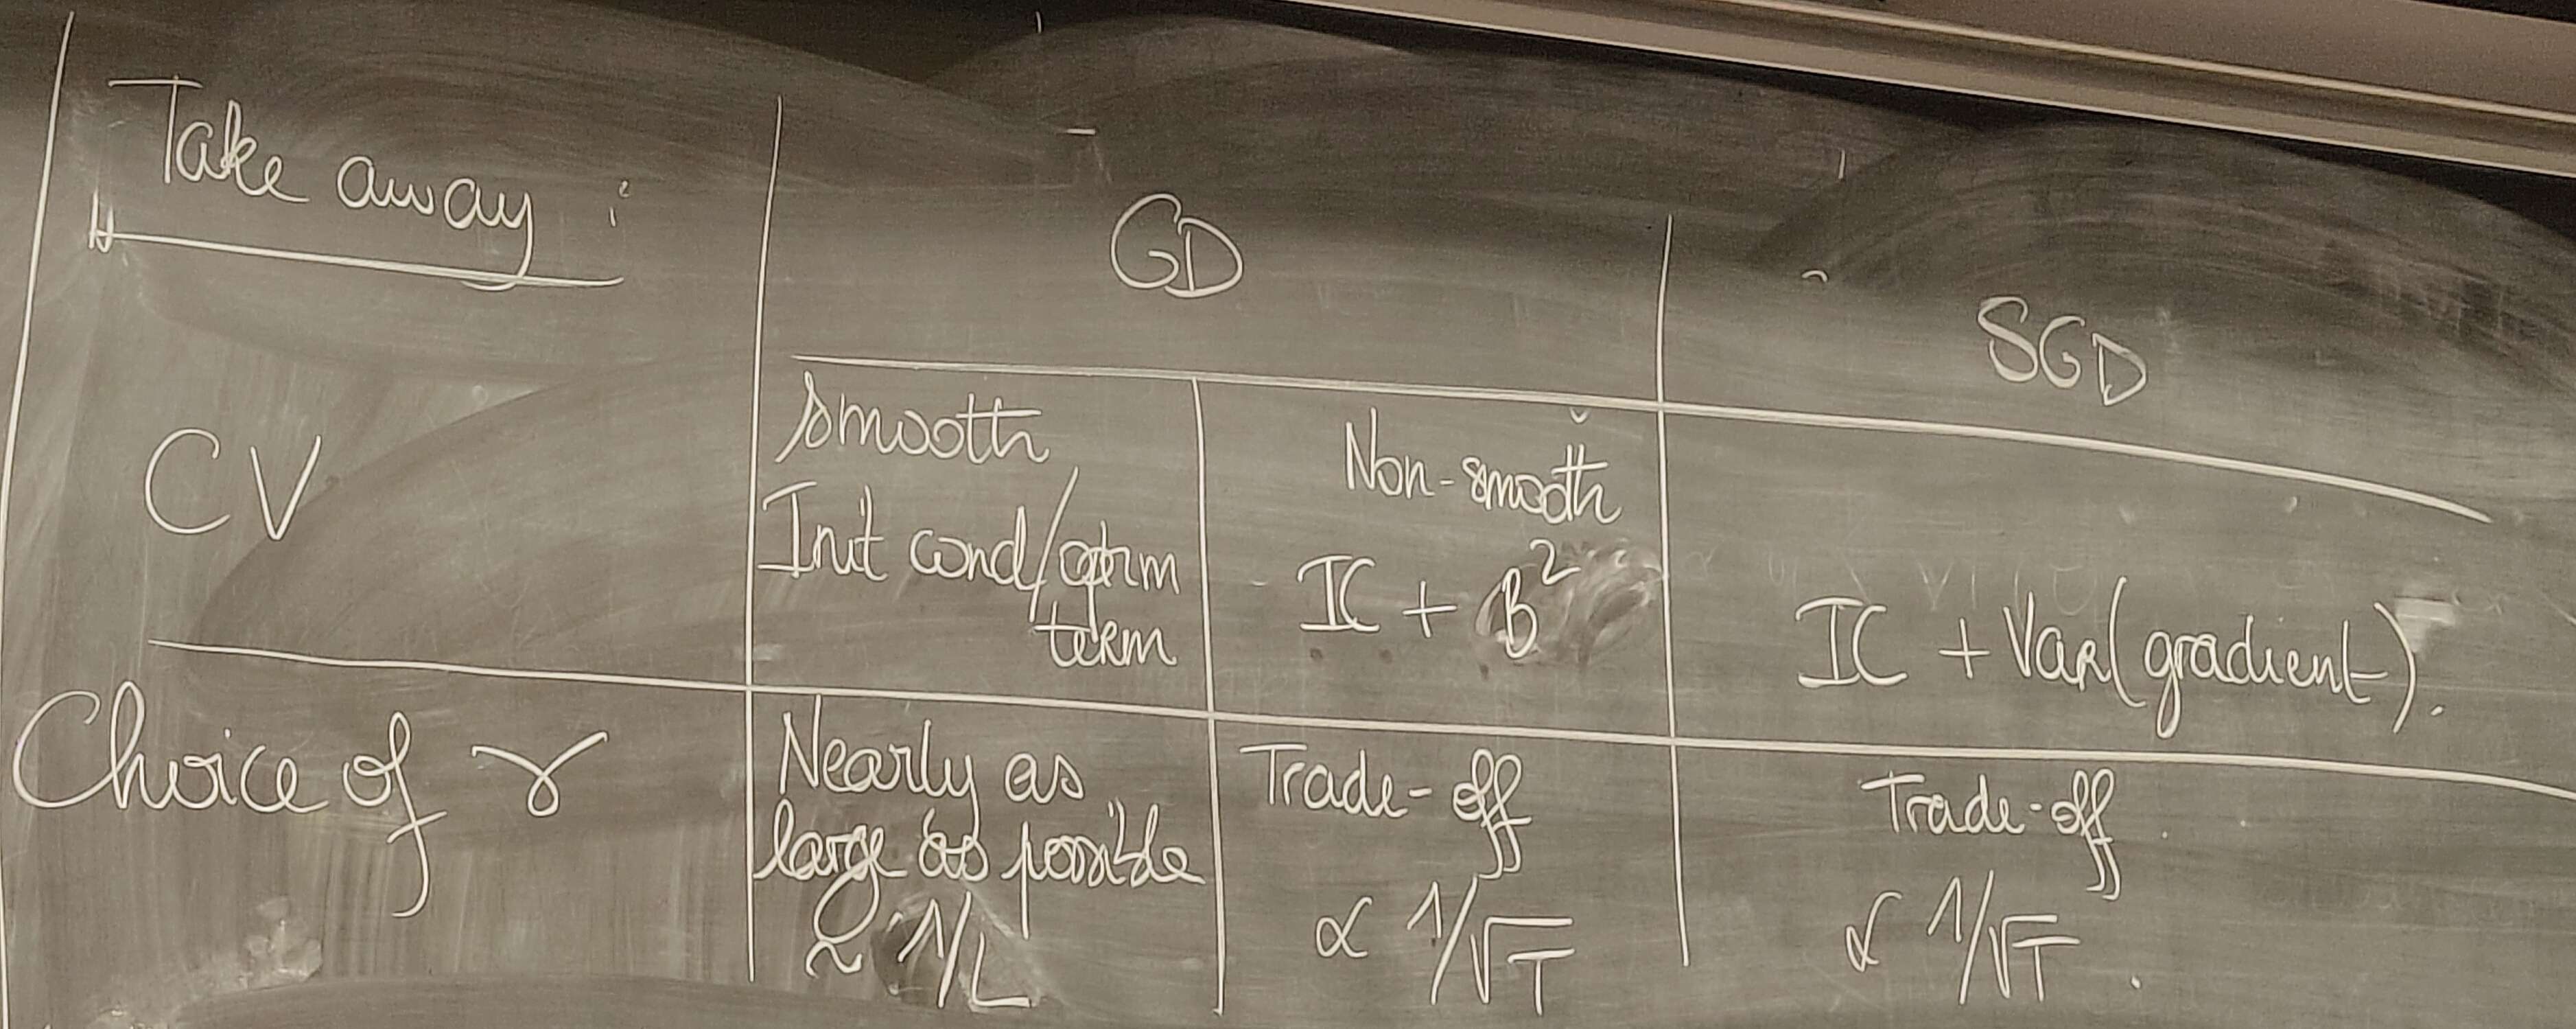 Take away :
GD
SGD
CV
Smooth
Init cond/optim
term
Non-smooth
IC + B²
IC + Var(gradient).
Choice of γ
Nearly as
large as possible
≈ 1/L
Trade-off
∝ 1/√T
Trade-off.
∝ 1/√T.